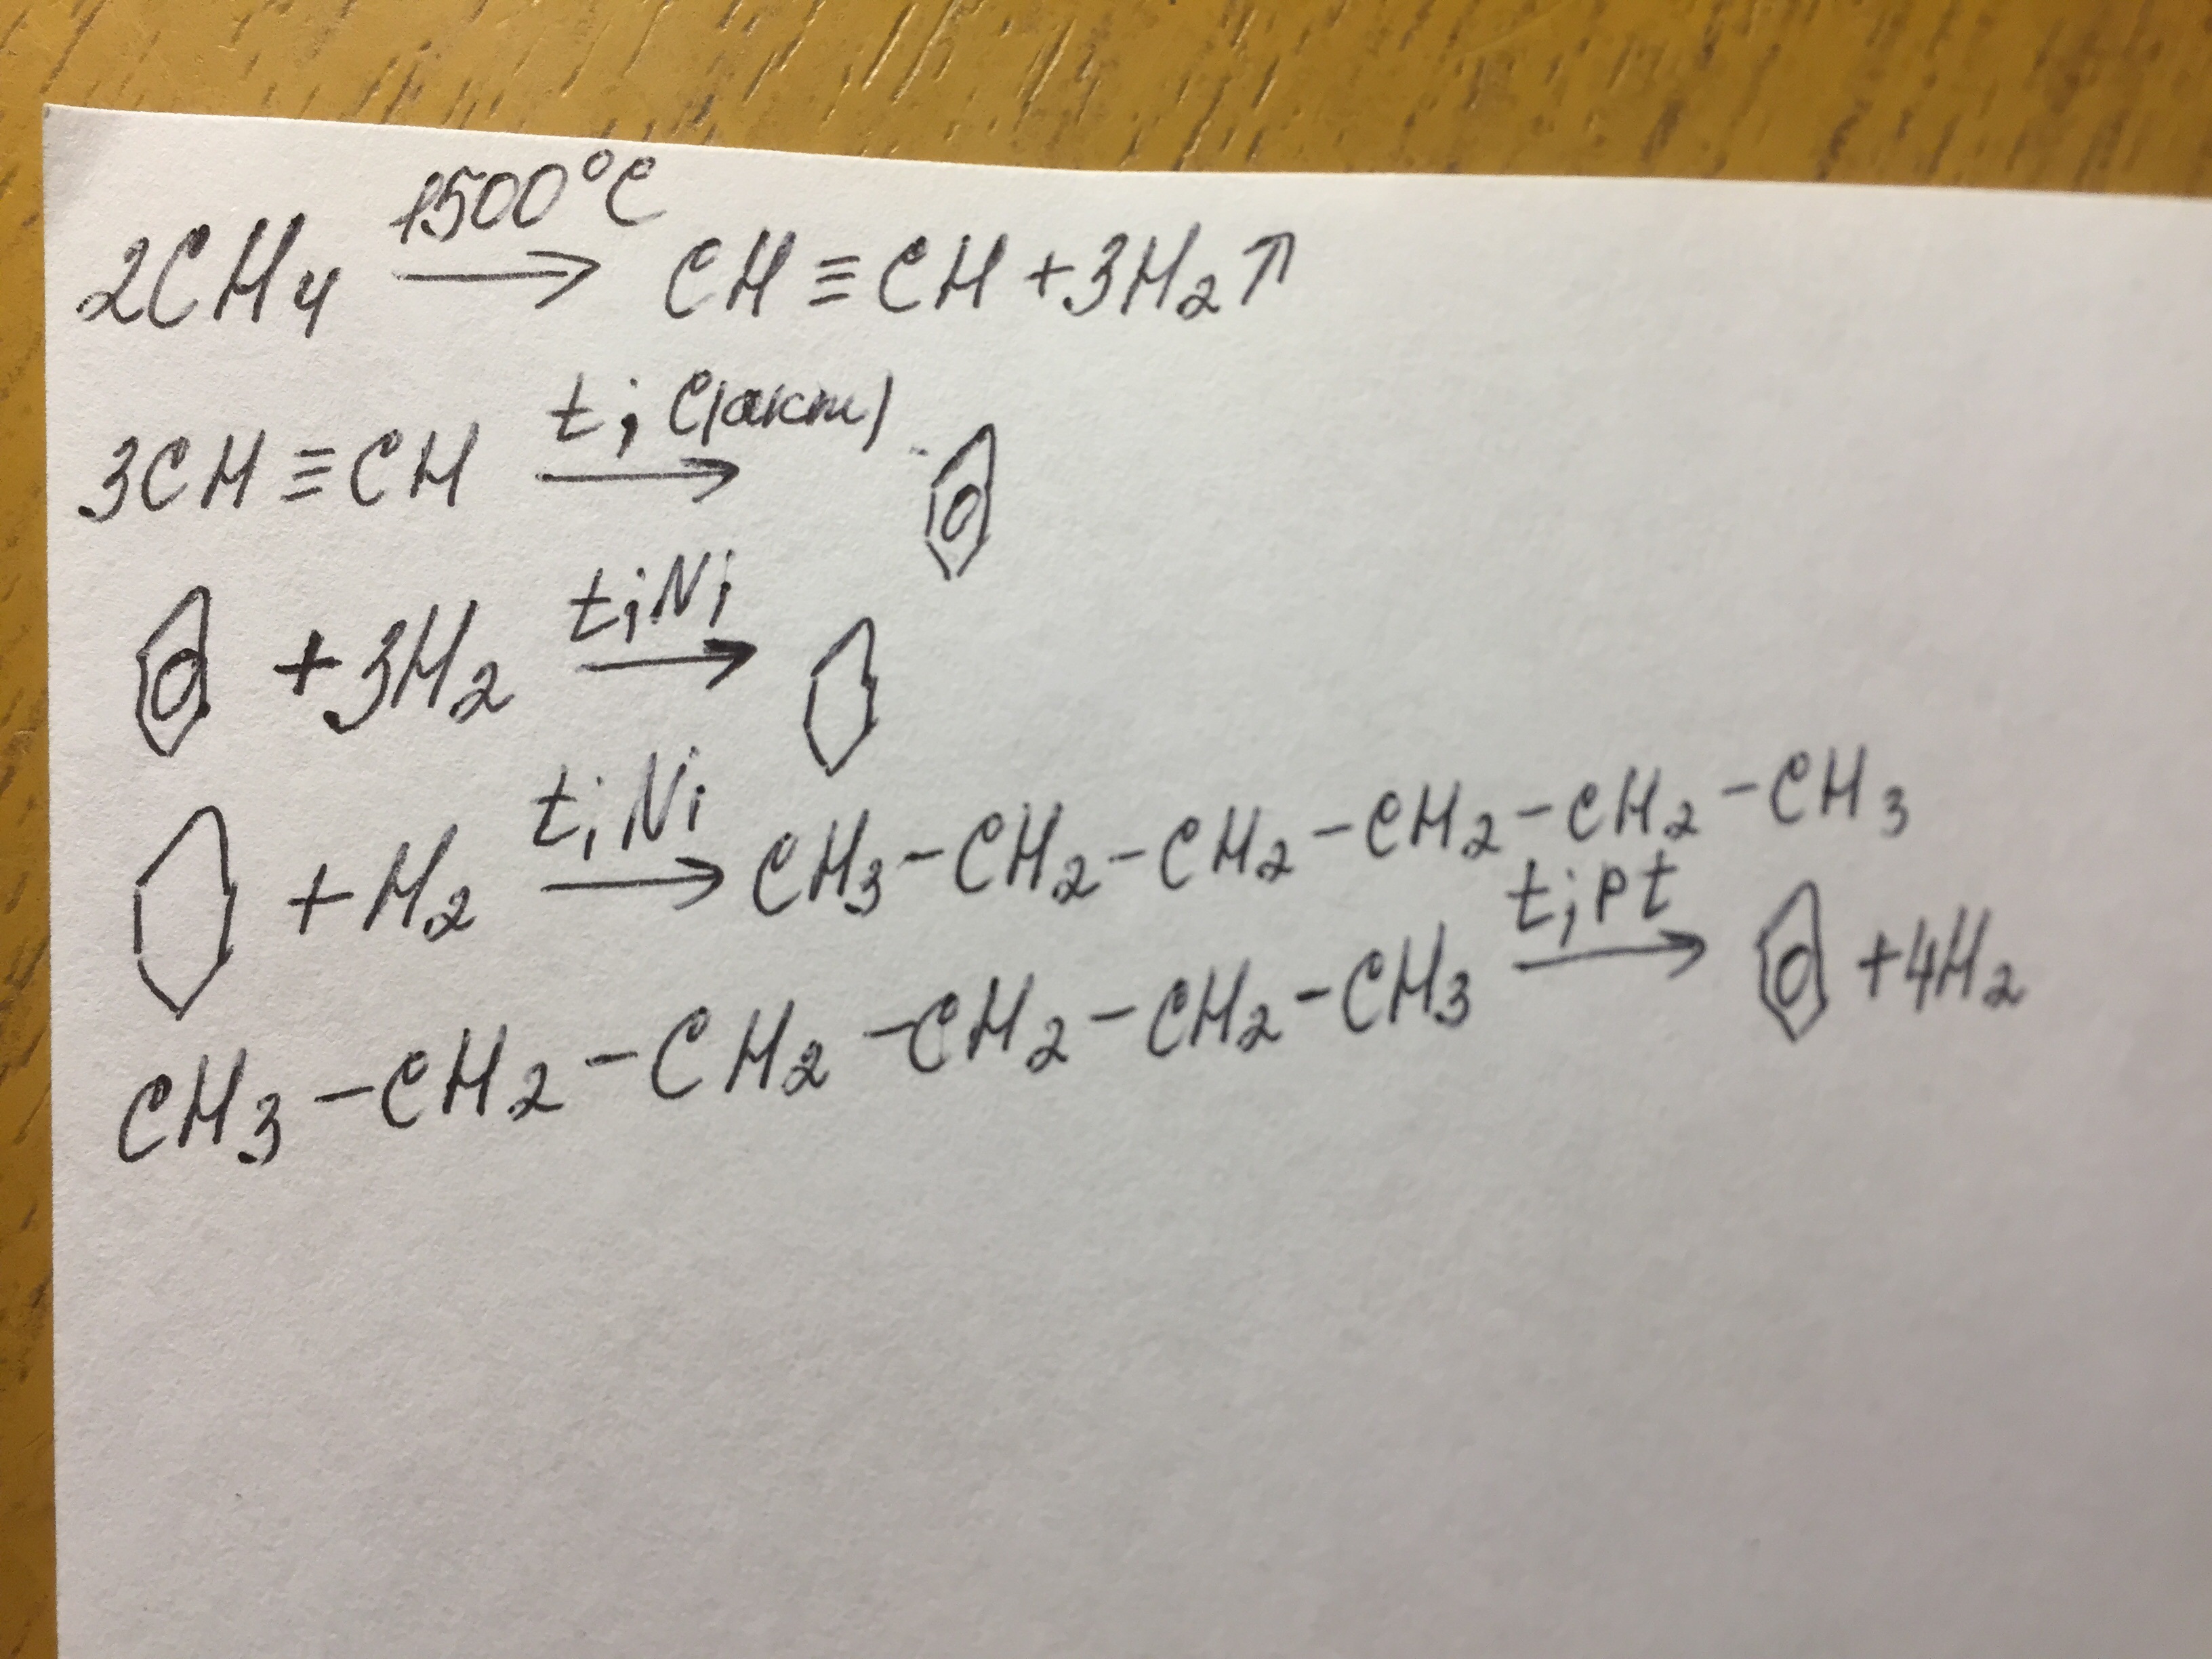 2CH₄ 1500°C → CH≡CH+3H₂↑
3CH≡CH t; C(акт) →
+3H₂ t; Ni →
+H₂ t; Ni → CH₃-CH₂-CH₂-CH₂-CH₂-CH₃
CH₃-CH₂-CH₂-CH₂-CH₂-CH₃ t; Pt → +4H₂